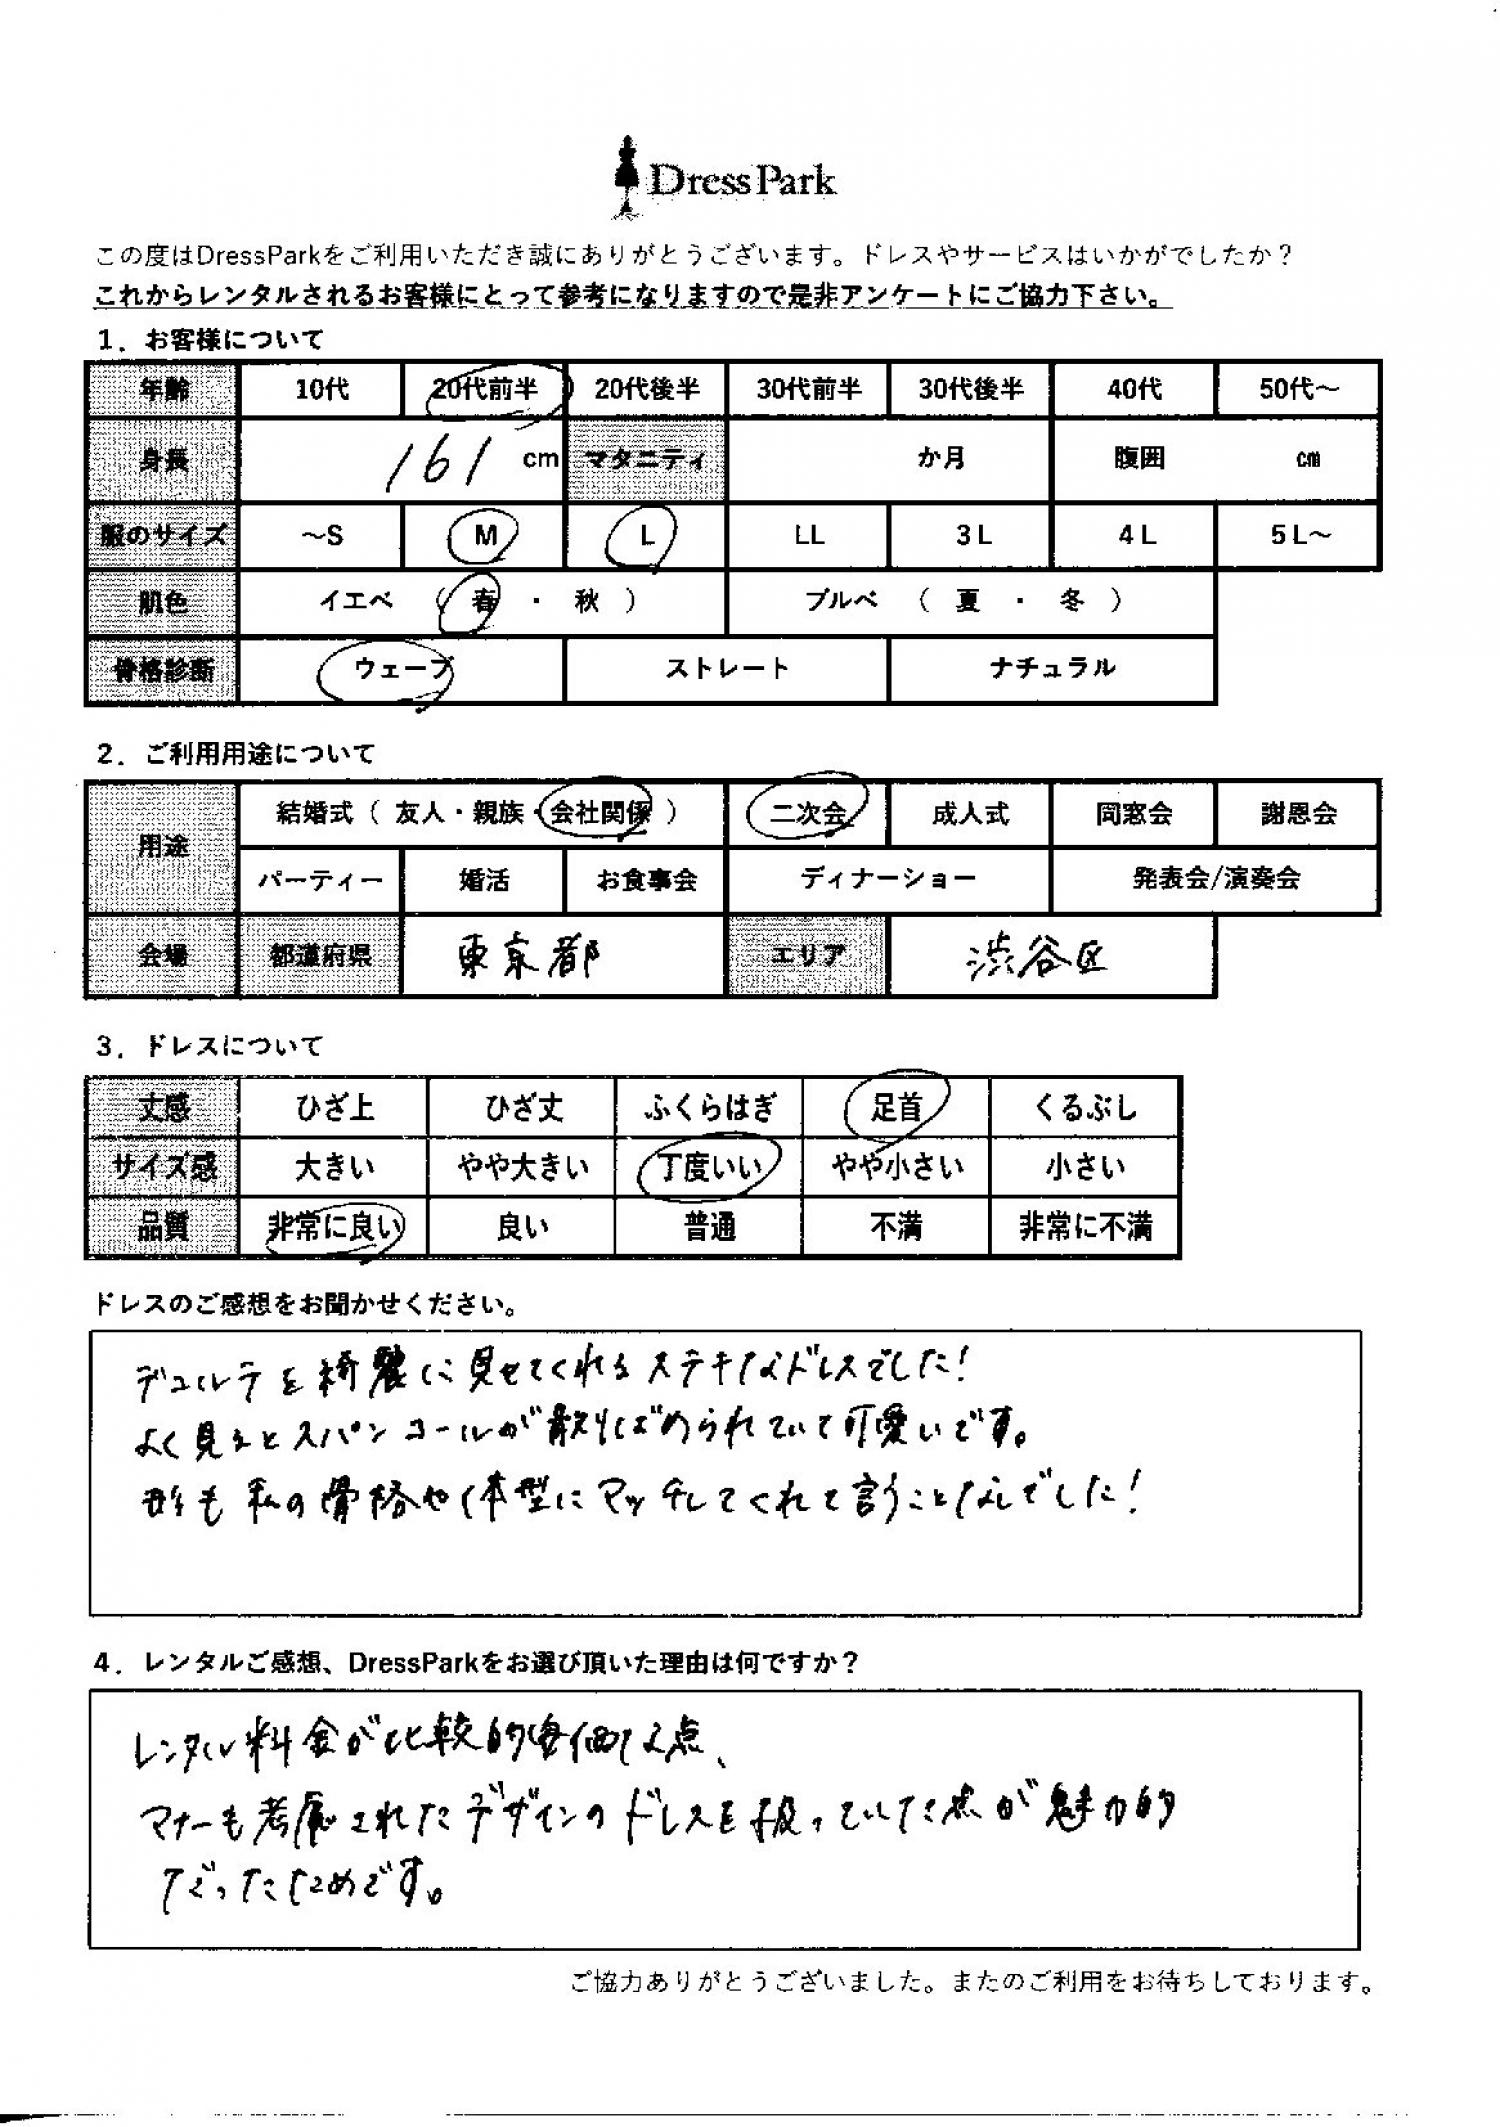 DressPark
この度はDressParkをご利用いただき誠にありがとうございます。ドレスやサービスはいかがでしたか？
これからレンタルされるお客様にとって参考になりますので是非アンケートにご協力下さい。
1．お客様について
年齢 10代 20代前半 20代後半 30代前半 30代後半 40代 50代～
身長 161 cm マタニティ か月 腹囲 ㎝
服のサイズ ～S M L LL 3L 4L 5L～
肌色 イエベ （ 春 ・ 秋 ） ブルベ （ 夏 ・ 冬 ）
骨格診断 ウェーブ ストレート ナチュラル
2．ご利用用途について
用途 結婚式（ 友人・親族・会社関係 ） 二次会 成人式 同窓会 謝恩会
パーティー 婚活 お食事会 ディナーショー 発表会/演奏会
会場 都道府県 東京都 エリア 渋谷区
3．ドレスについて
丈感 ひざ上 ひざ丈 ふくらはぎ 足首 くるぶし
サイズ感 大きい やや大きい 丁度いい やや小さい 小さい
品質 非常に良い 良い 普通 不満 非常に不満
ドレスのご感想をお聞かせください。
デコルテを綺麗に見せてくれるステキなドレスでした！
よく見るとスパンコールが散りばめられていて可愛いです。
形も私の骨格や体型にマッチしてくれて言うことなしでした！
4．レンタルご感想、DressParkをお選び頂いた理由は何ですか？
レンタル料金が比較的安価な点、
マナーも考慮されたデザインのドレスを扱っていた点が魅力的
だったためです。
ご協力ありがとうございました。またのご利用をお待ちしております。